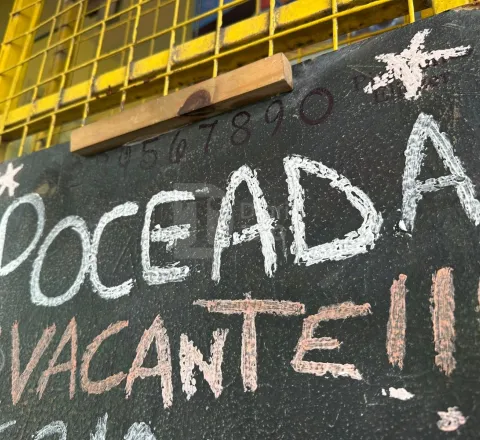 567890
POCEADA
VACANTE!!!